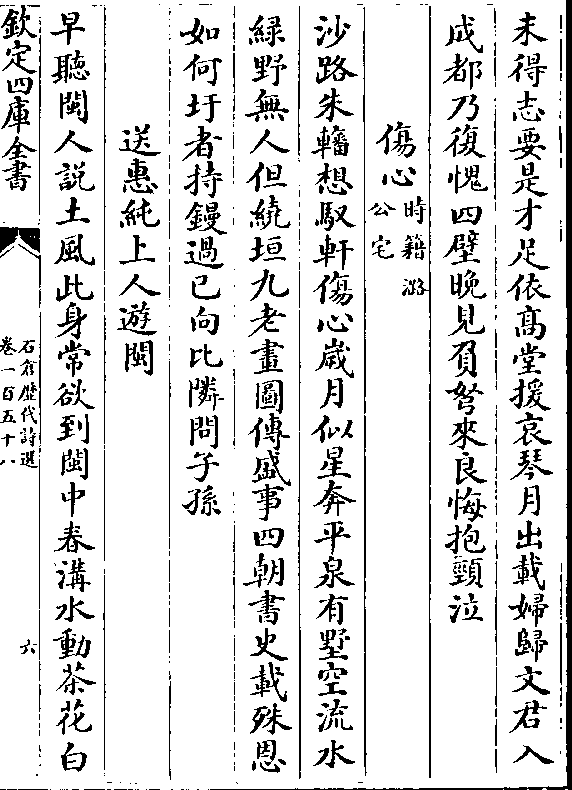 未得志要是才足依高堂援哀琴月出載婦歸文君入
成都乃復愧四壁晚見負弩來良悔抱頸泣
傷心時籍潞公宅
沙路朱轓想馭軒傷心歲月似星奔平泉有墅空流水
緑野無人但繞垣九老畫圖傳盛事四朝書史載殊恩
如何圬者持鏝過已向比隣問子孫
送惠純上人遊閩
早聽閩人説土風此身常欲到閩中春溝水動茶花白
欽定四庫全書
石倉歴代詩選
卷一百五十八
六